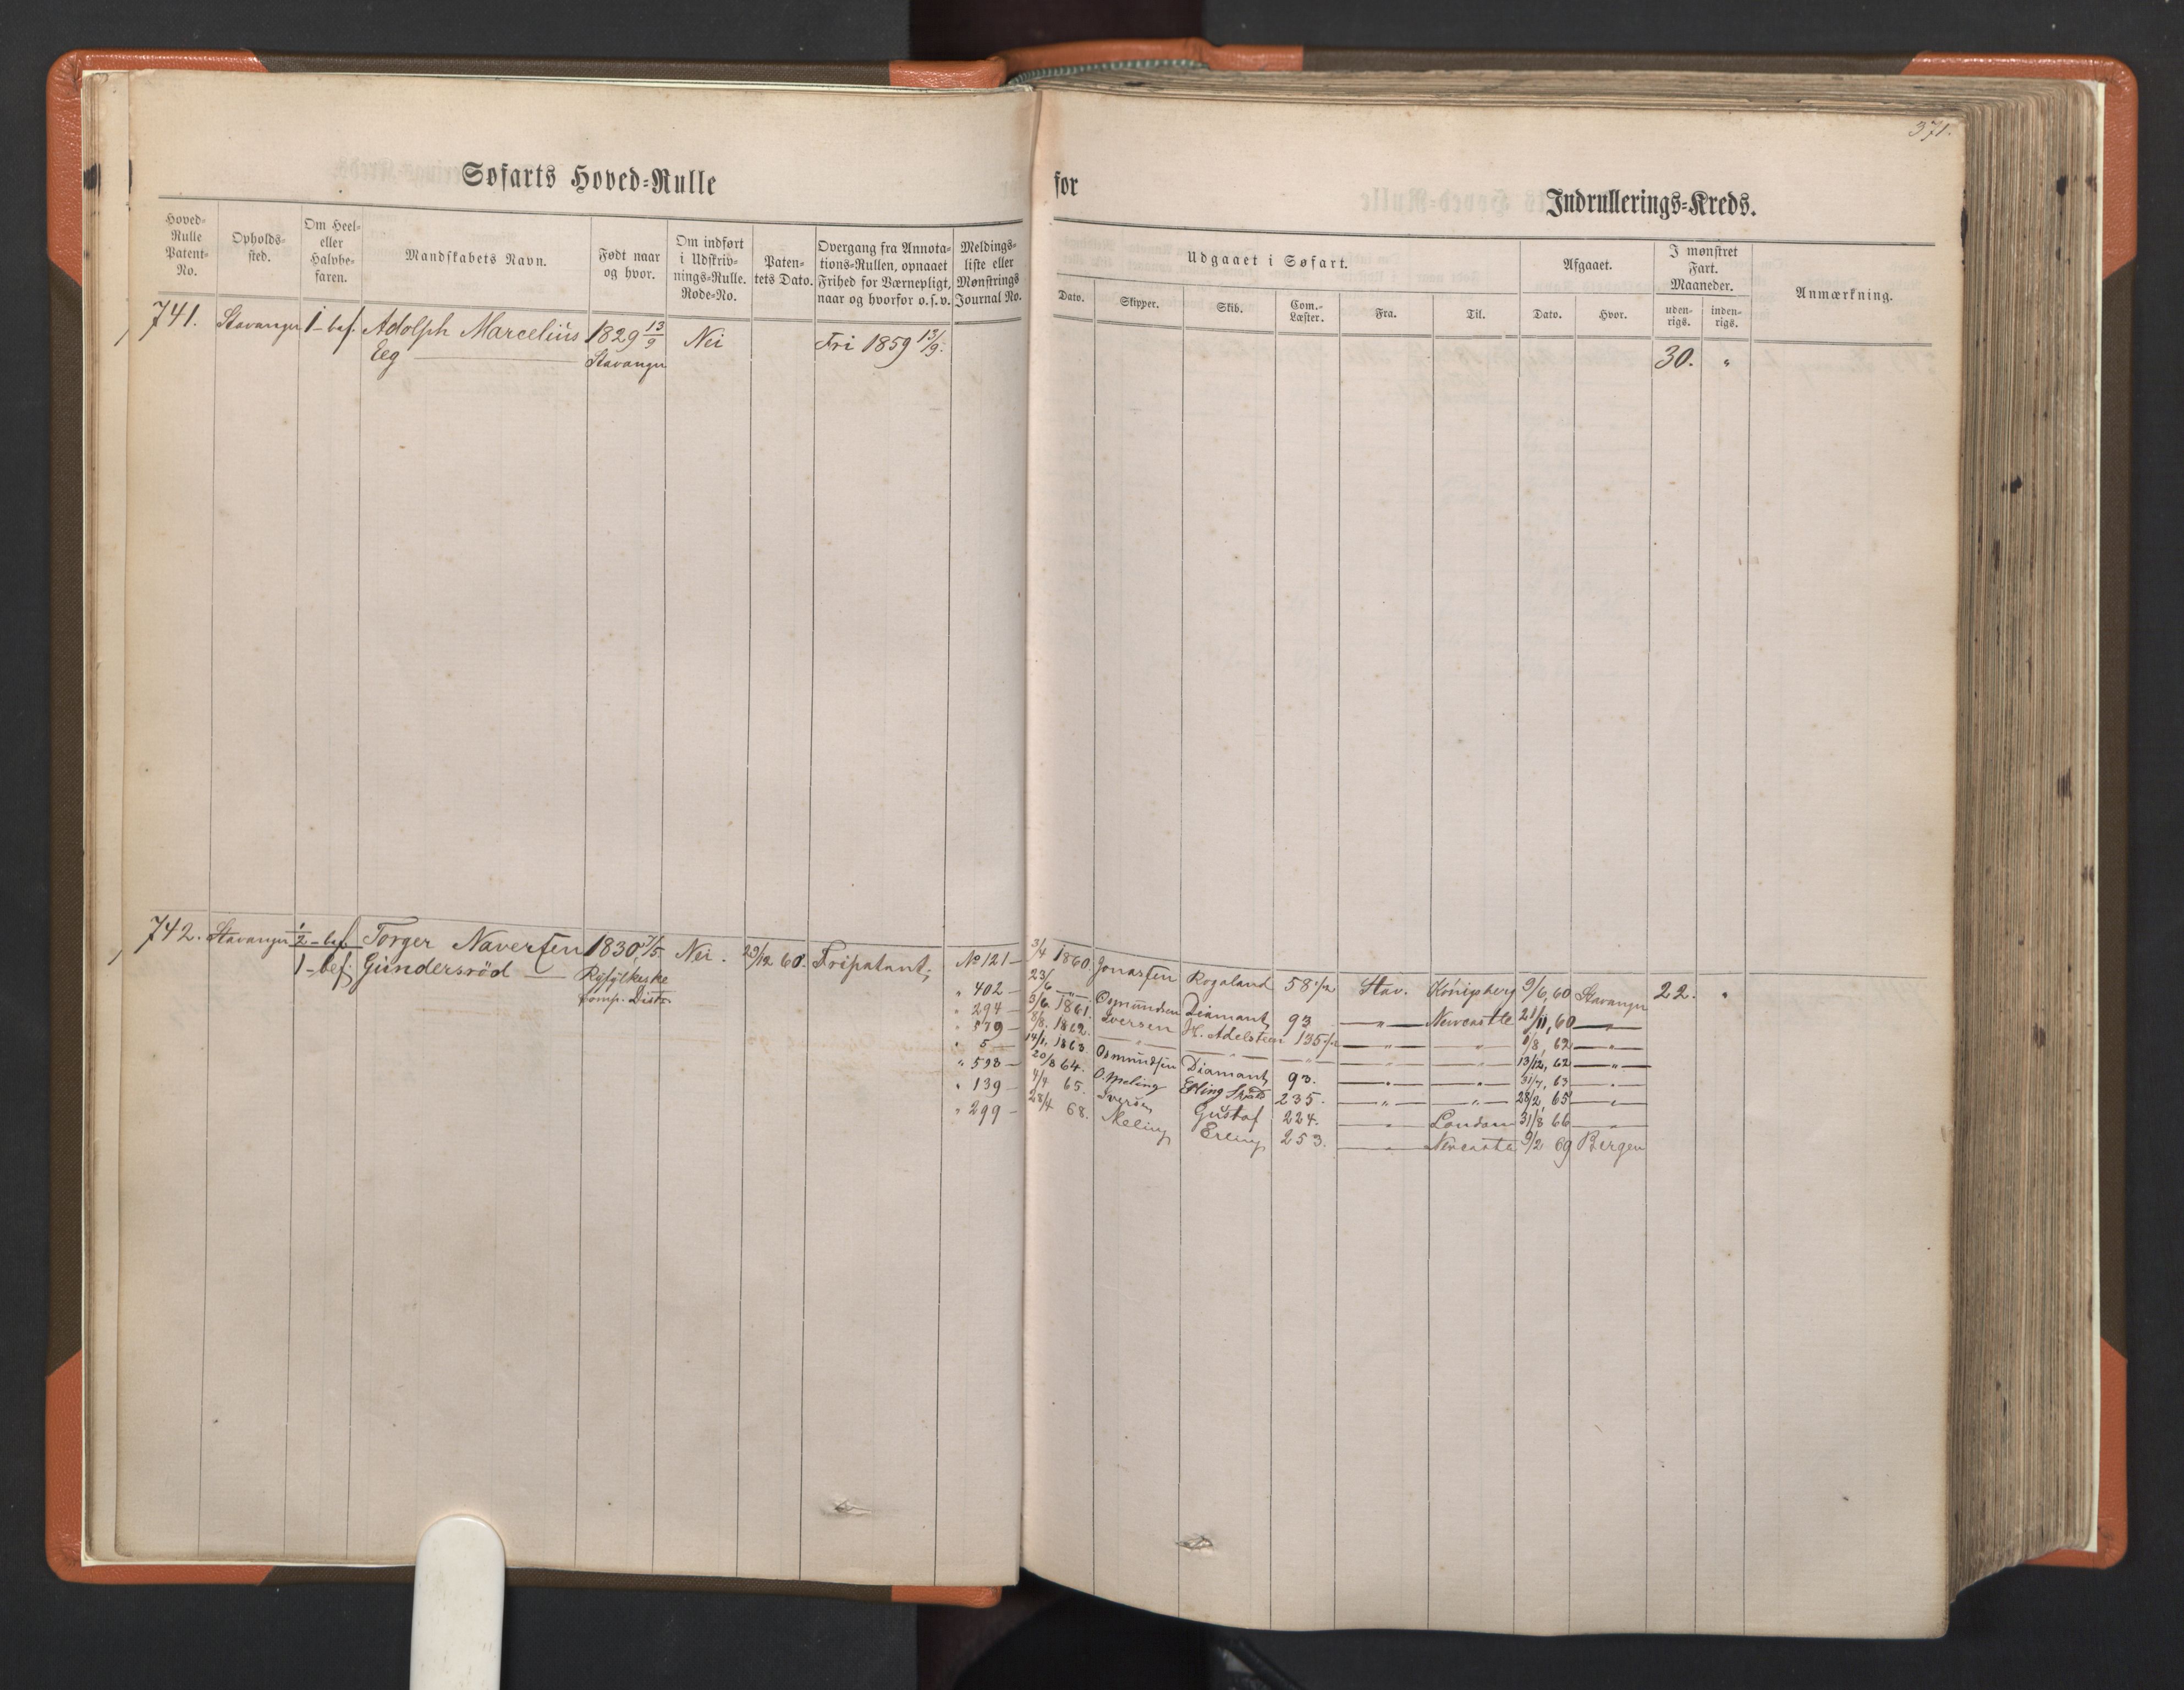 371.
Søfarts Hoved-Rulle
for
Indrullerings-Kreds.
Hoved-Rulle Patent-No.
Opholds-sted.
Om Heel- eller Halvbe-faren.
Mandskabets Navn.
Født naar og hvor.
Om indført i Udskriv-nings-Rulle. Rode-No.
Paten-tets Dato.
Overgang fra Annota-tions-Rullen, opnaaet Frihed for Værnepligt, naar og hvorfor o.s.v.
Meldings-liste eller Mønstrings Journal No.
Udgaaet i Søfart.
Dato. Skipper. Skib. Com.-Læster. Fra. Til.
Afgaaet.
Dato. Hvor.
I mønstret Fart. Maaneder.
uden-rigs. inden-rigs.
Anmærkning.
741. Stavanger 1-bef. Adolph Marcelius 1829 13/9 Nei Fri 1859 13/9. 30. "
Eeg — Stavanger
742. Stavanger 1/2-bef. Torger Naversen 1830, 7/5. Nei. 29/12 60. Fripatent;
1-bef. Gundersröd — Ryfylkeske
Komp. Distr.
No 121 — 3/4 1860. Jonassen Rogaland 58 1/2 Stav. Königsberg 9/6, 60 Stavanger 22. "
" 402 — 23/6 — " — Osmundsen Diamant, 93 — " — Newcastle 21/11, 60 — " —
" 294 — 3/6 1861. Iversen H. Adelsteen 135 1/2 — " — — " — 8/8, 62 — " —
" 579 — 8/8. 1862. — " — — " — — " — — " — — " — 13/12, 62 — " —
" 5 — 14/1, 1863. Osmundsen Diamant, 93. — " — — " — 31/7, 63 — " —
" 598 — 20/8 64. O. Meling Erling Skatt 235. — " — — " — 28/2, 65 — " —
" 139 — 4/4 65. Iversen Gustaf 224. — " — London 31/8 66 — " —
" 299 — 28/4 68. Meling Erling 253. — " — Newcastle 9/2 69 Bergen